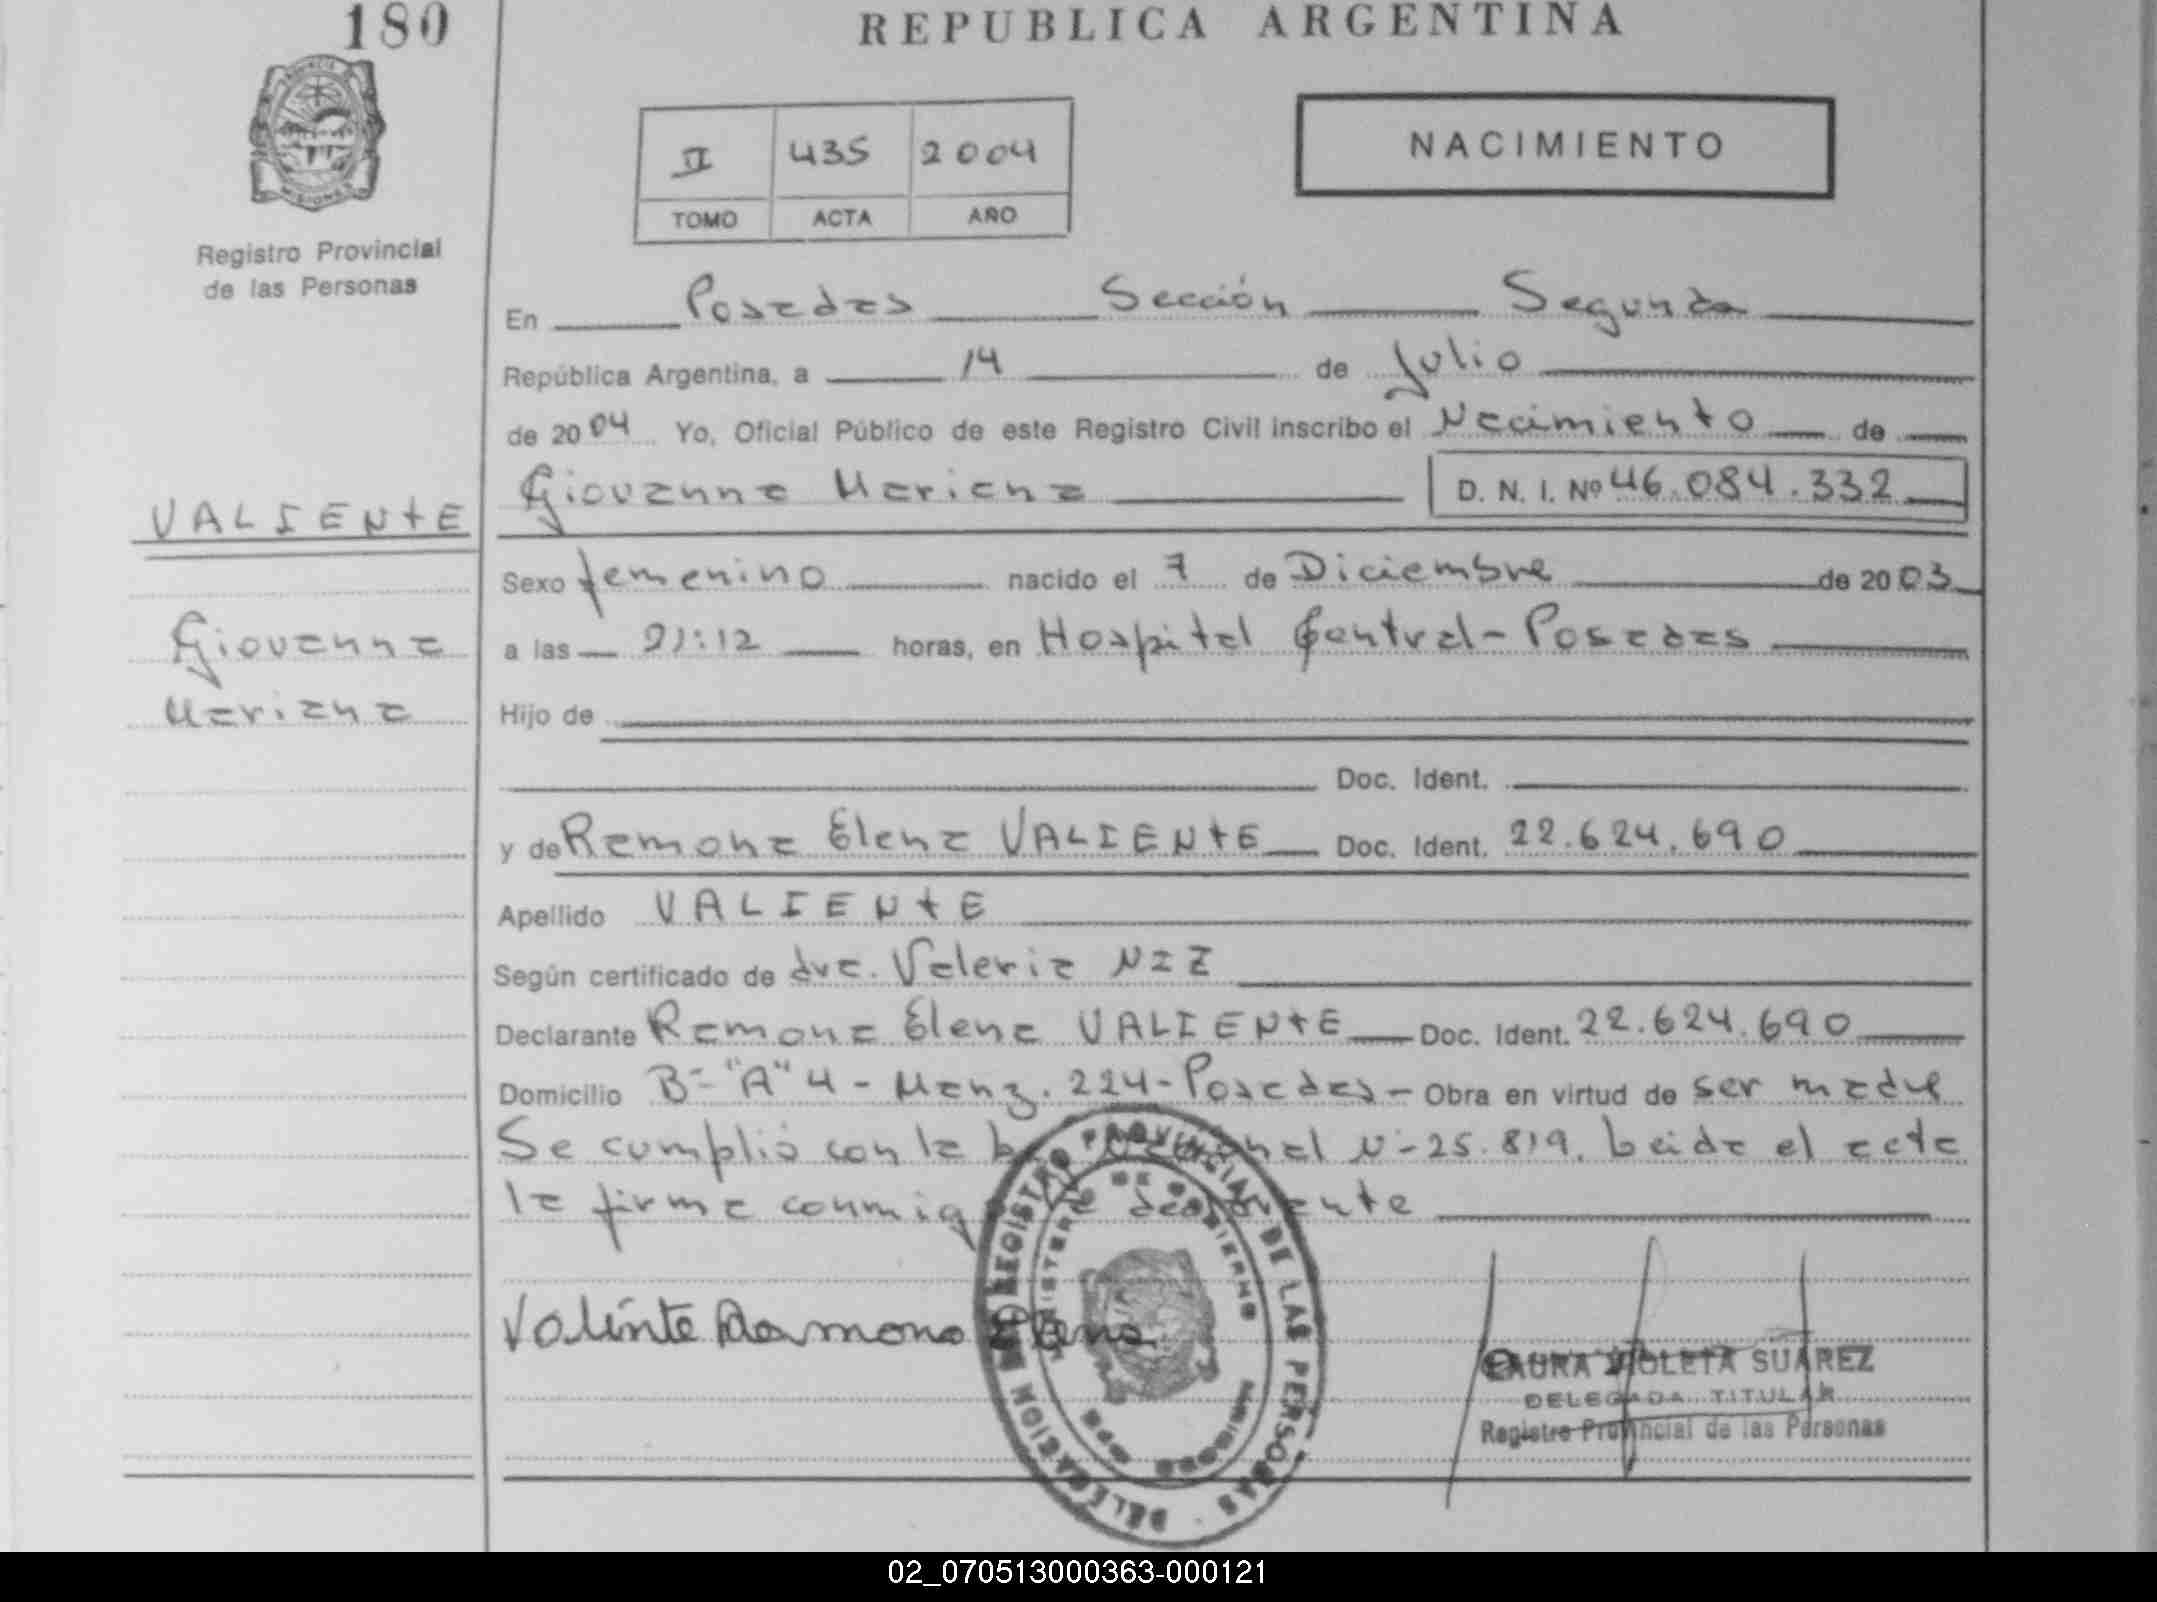 180
REPUBLICA ARGENTINA
NACIMIENTO
II 435 2004
TOMO ACTA AÑO
Registro Provincial
de las Personas
En Posadas Sección Segunda
República Argentina, a 14 de Julio
de 2004 Yo, Oficial Público de este Registro Civil inscribo el Nacimiento de
VALIENTE
Giovanna Mariana D. N. I. Nº 46.084.332
Sexo femenino nacido el 7 de Diciembre de 2003
Giovanna
a las 21:12 horas, en Hospital Central - Posadas
Mariana
Hijo de
Doc. Ident.
y de Ramona Elena VALIENTE Doc. Ident. 22.624.690
Apellido VALIENTE
Según certificado de dra. Valeria
Declarante Ramona Elena VALIENTE Doc. Ident. 22.624.690
Domicilio B- "A" 4 - Manz. 224 - Posadas - Obra en virtud de ser madre
Se cumplió con la Nº-25.819. Leida el acta
la firma conmigo la declarante
Valiente Ramona Elena
REGISTRO PROVINCIAL DE LAS PERSONAS
DELEGACION
MINISTERIO DE GOBIERNO
LAURA VIOLETA SUAREZ
DELEGADA TITULAR
Registro Provincial de las Personas
02_070513000363-000121